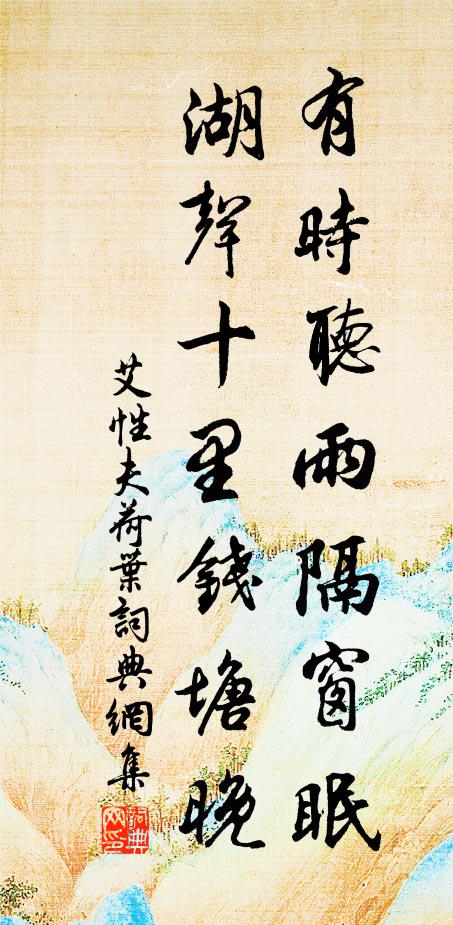 有時聽雨隔窗眠
湖聲十里錢塘晚
艾性夫荷葉詞典網集
詞典網印